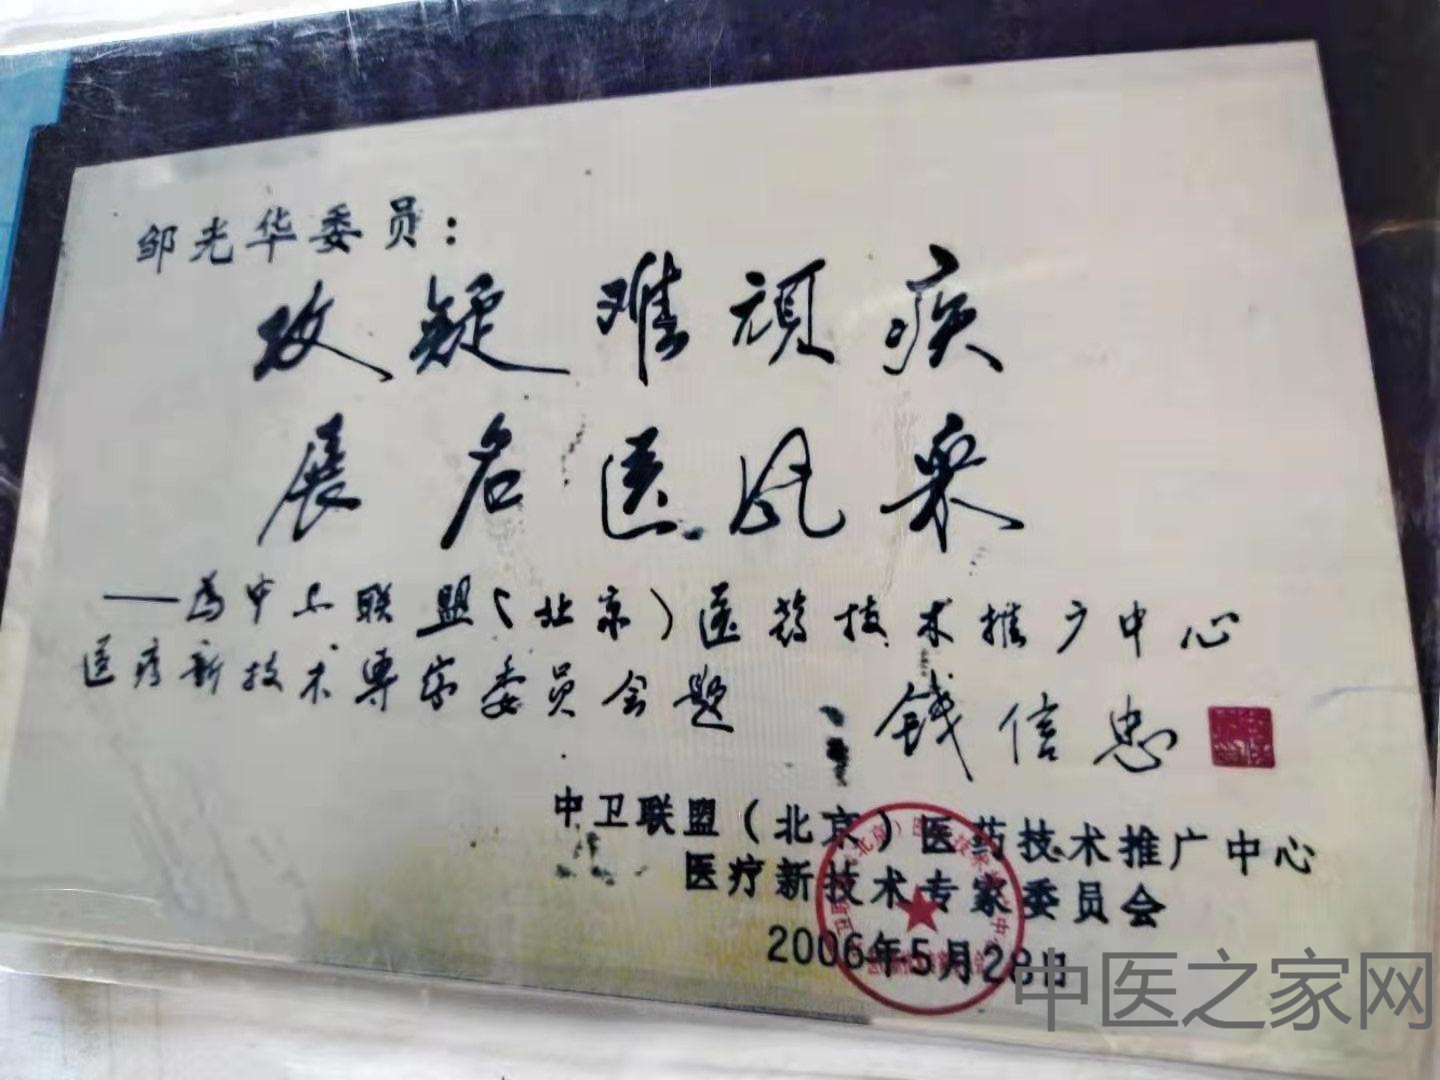 邹光华委员：
攻疑难顽疾
展名医风采
——为中卫联盟（北京）医药技术推广中心
医疗新技术专家委员会题
钱信忠
中卫联盟（北京）医药技术推广中心
医疗新技术专家委员会
2006年5月28日
中医之家网